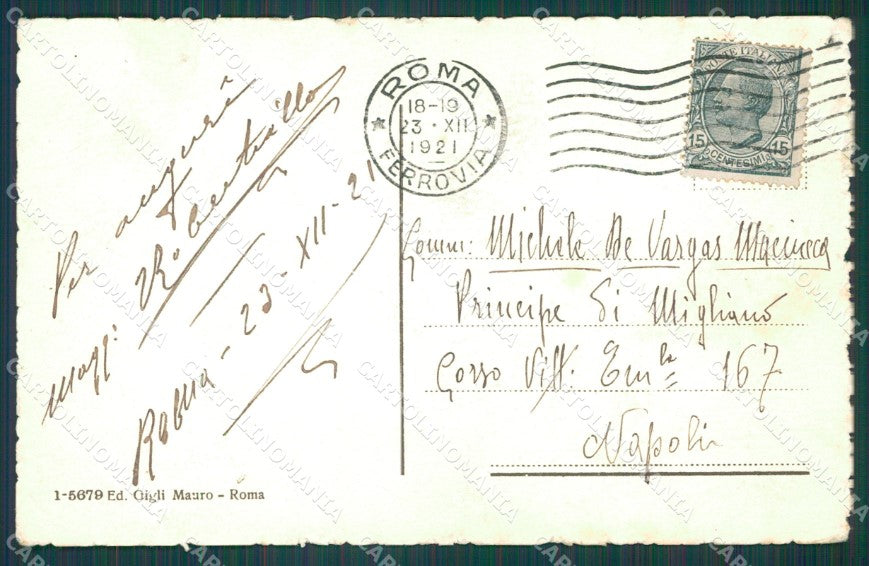 Per auguri
Magg:
Roma - 23 - XII - 21
1-5679 Ed. Gigli Mauro - Roma
ROMA
18-19
23 · XII
1921
FERROVIA
POSTE ITALIANE
15 15
CENTESIMI
Comm: Michele De Vargas Macciucca
Principe di Migliano
Corso Vitt. Em.le 167
Napoli
CARTOLINOMANIA